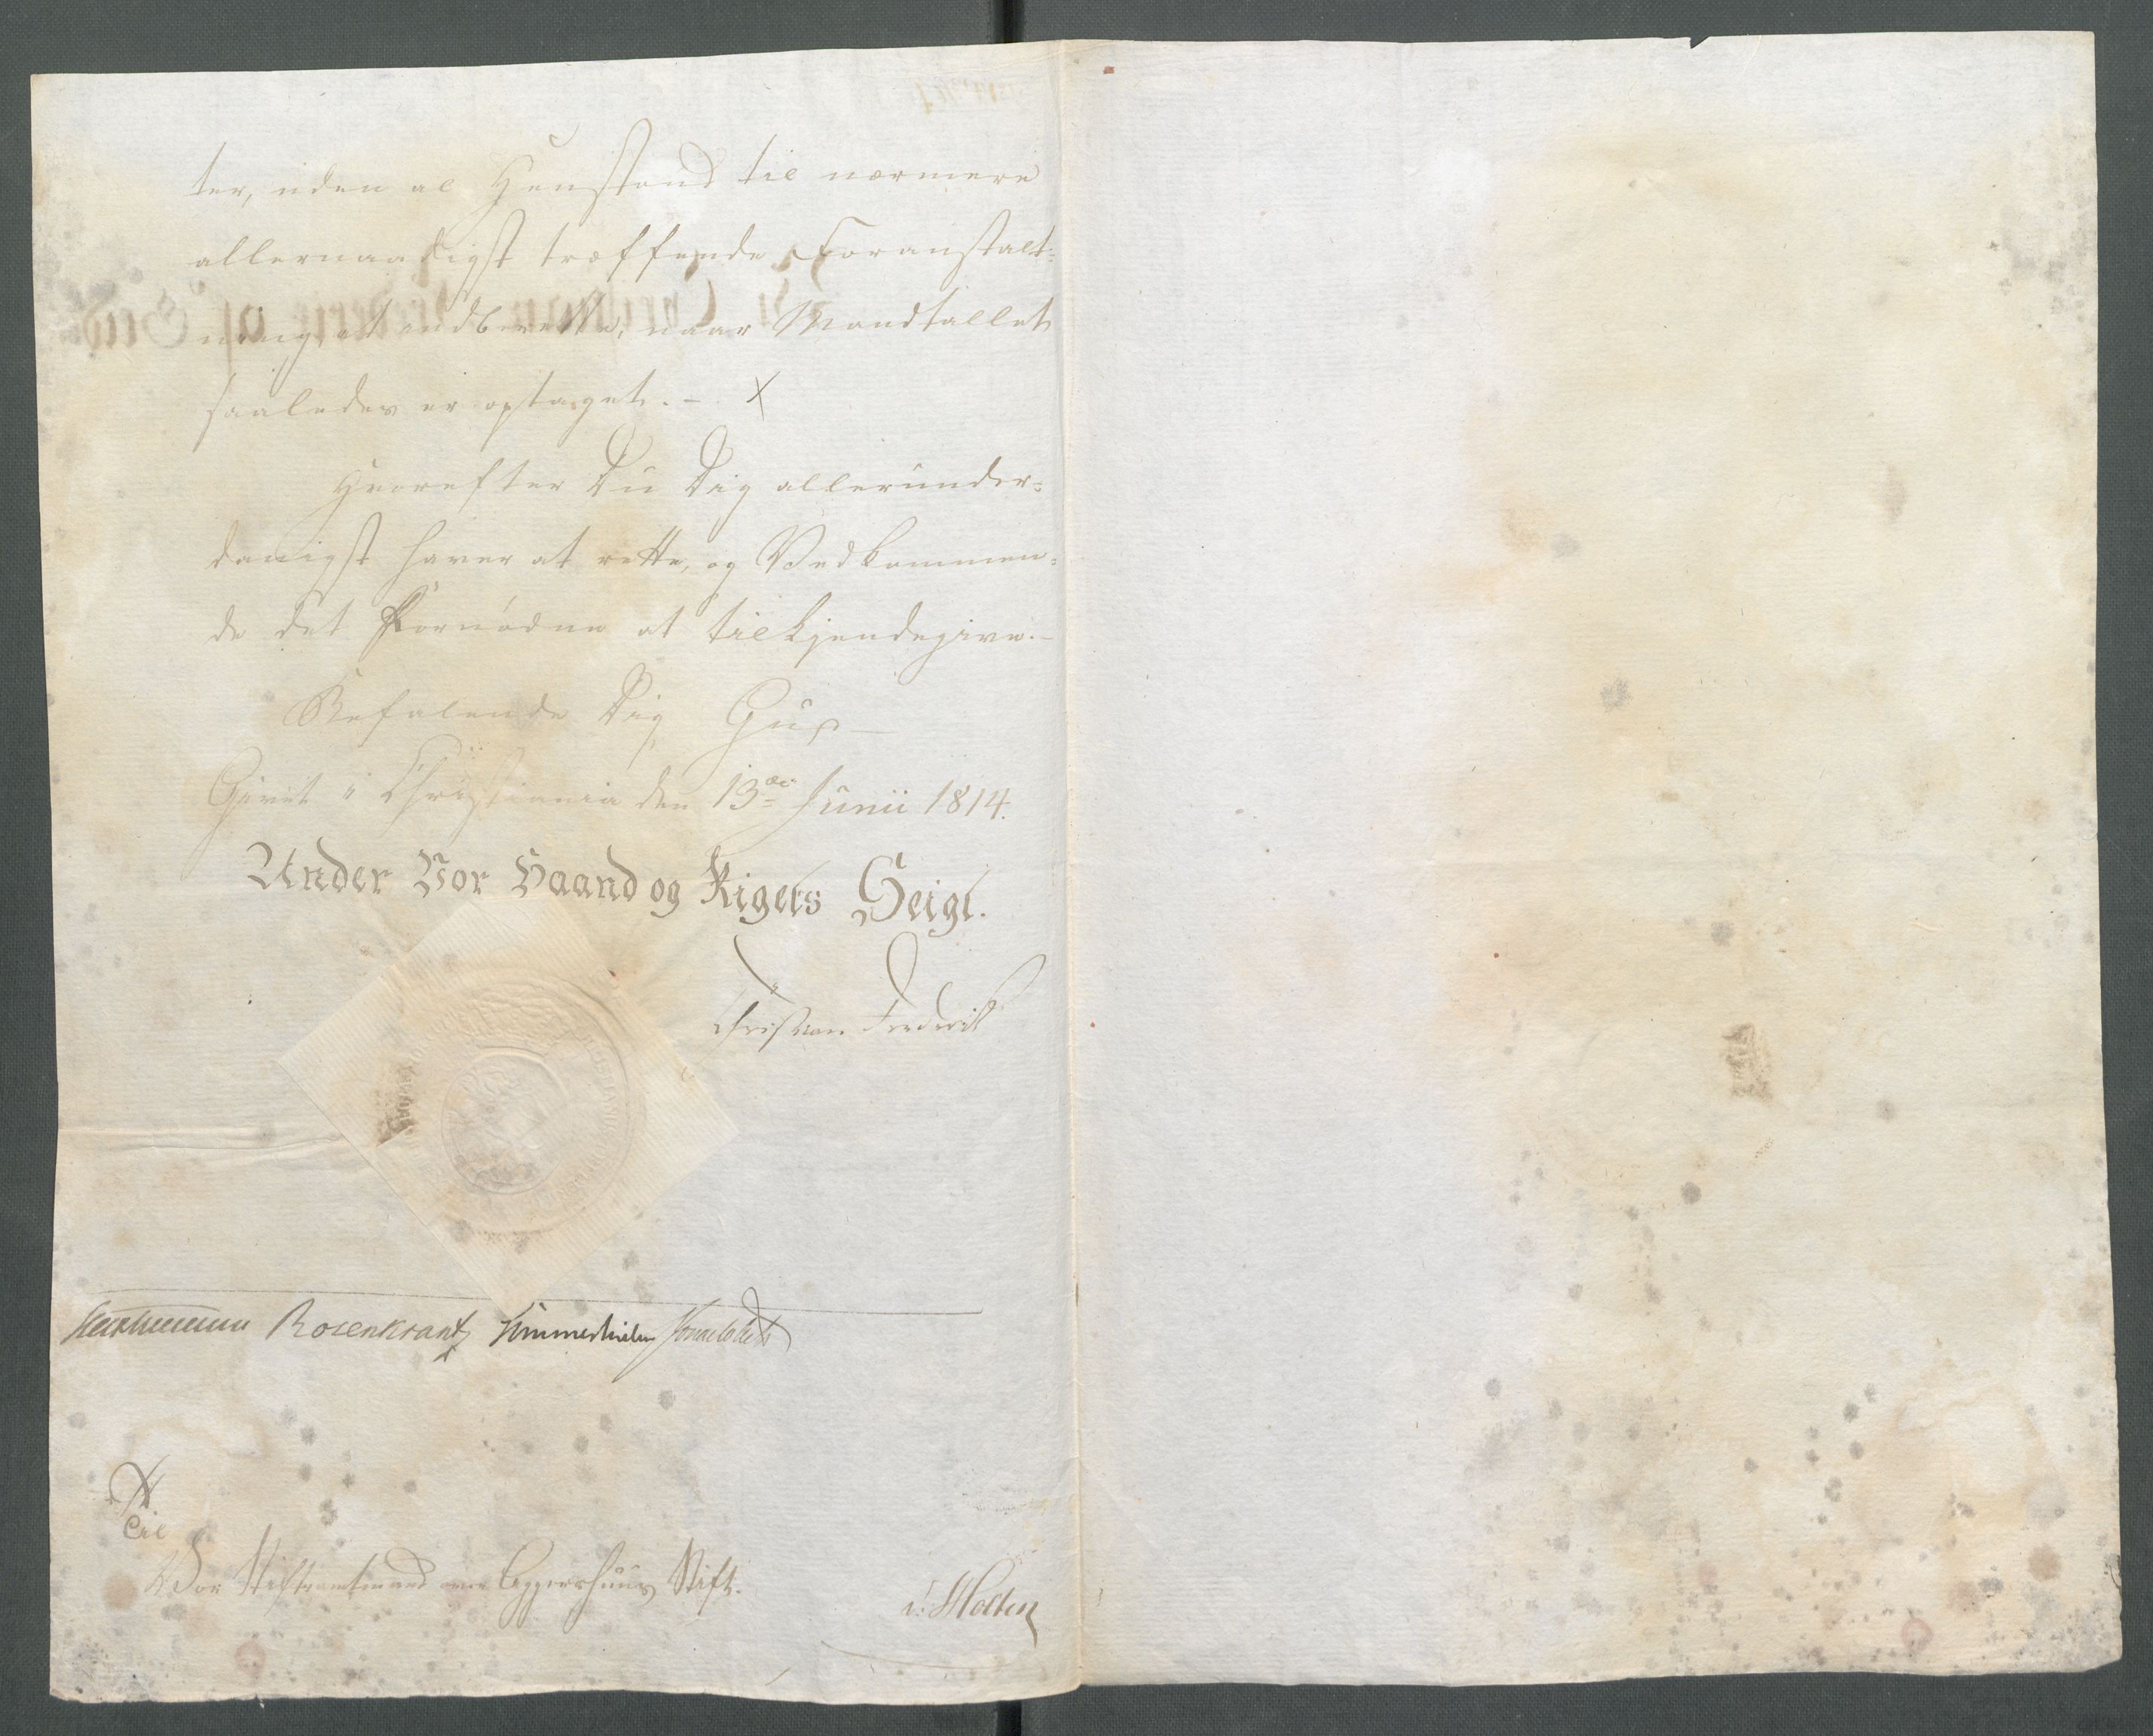 ter, uden al Henstand til nærmere
allernaadigst træffende Foranstalt-
ning, at indberette, naar Mandtallet
saaledes er optaget. - X
Hvorefter Du Dig allerunder-
danigst haver at rette, og Vedkommen-
de det Fornødne at tilkjendegive. -
Befalende Dig Gud
Givet i Christiania den 13de Junii 1814.
Under Vor Haand og Rigets Seigl.
Christian Frederik
Rosenkrantz Sommerhielm
Til
Vor Stiftamtmand over Aggershuus Stift.
v. Holten